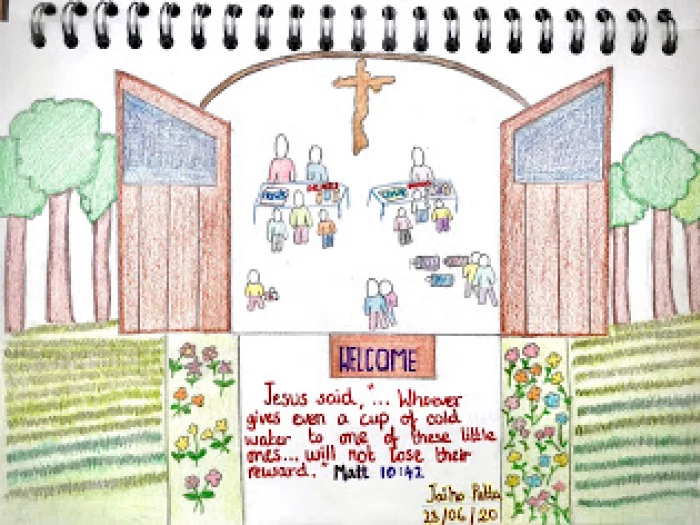 WELCOME
Jesus said, "... Whoever
gives even a cup of cold
water to one of these little
ones... will not lose their
reward." Matt 10:42
23/06/20